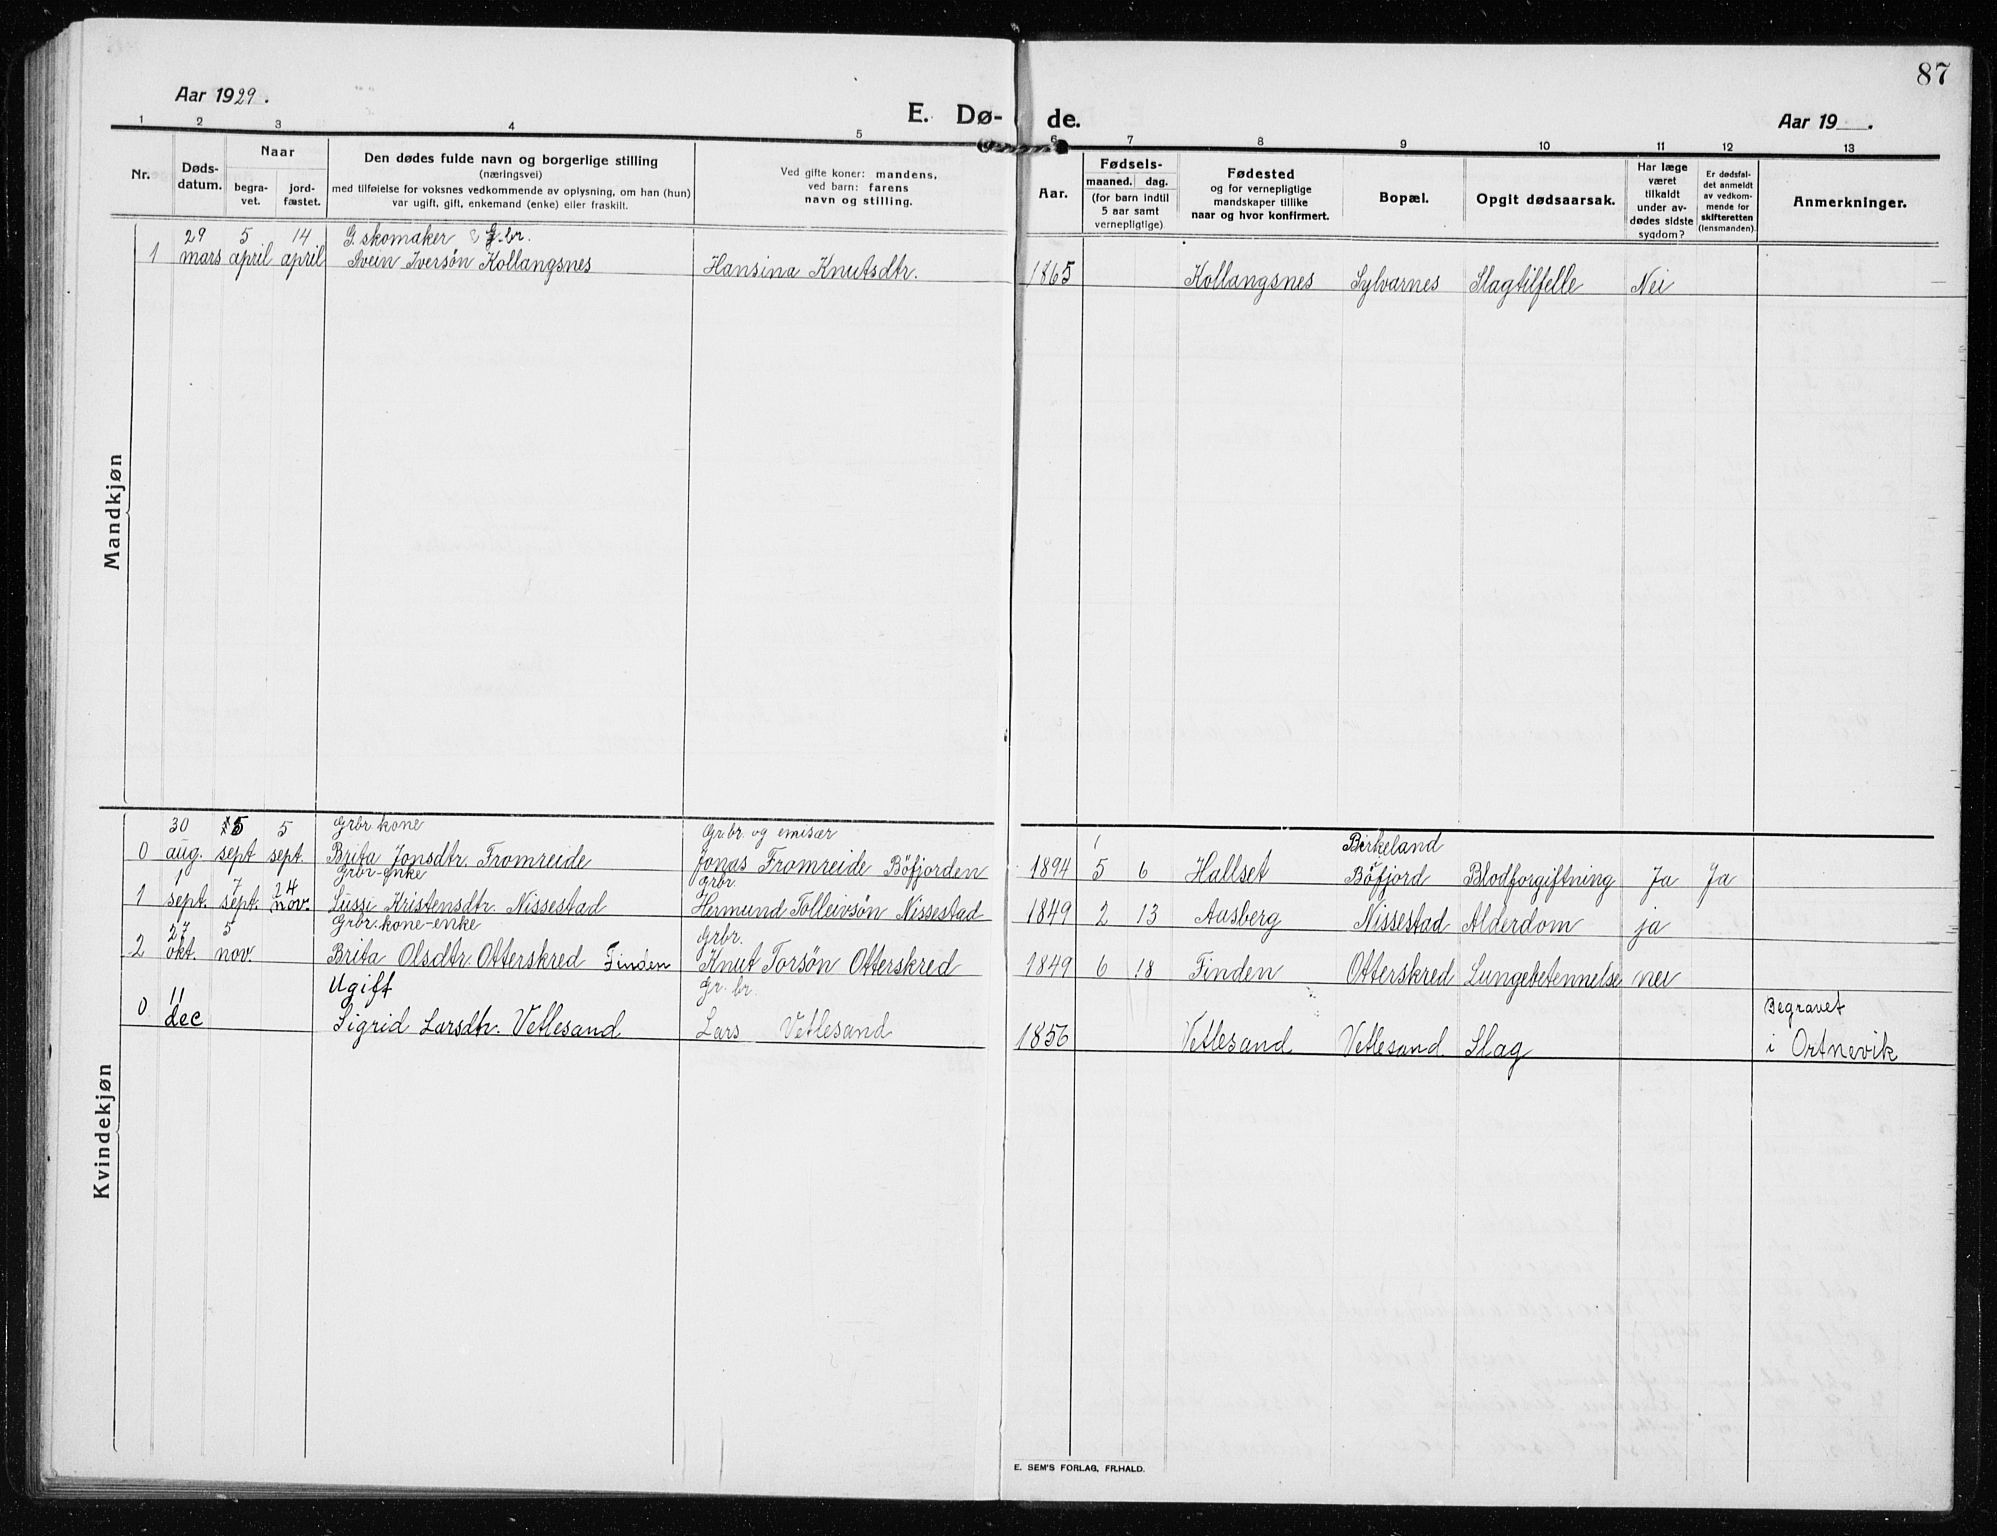 87
Aar 1929.
E. Dø- de.
Aar 19 .
1 2 3 4 5 6 7 8 9 10 11 12 13
Nr.
Døds-
datum.
Naar
begra-
vet.
jord-
fæstet.
Den dødes fulde navn og borgerlige stilling
(næringsvei)
med tilføielse for voksnes vedkommende av oplysning, om han (hun)
var ugift, gift, enkemand (enke) eller fraskilt.
Ved gifte koner: mandens,
ved barn: farens
navn og stilling.
Aar.
Fødsels-
maaned. dag.
(for barn indtil
5 aar samt
vernepligtige)
Fødested
og for vernepligtige
mandskaper tillike
naar og hvor konfirmert.
Bopæl.
Opgit dødsaarsak.
Har læge
været
tilkaldt
under av-
dødes sidste
sygdom?
Er dødsfal-
det anmeldt
av vedkom-
mende for
skifteretten
(lensmanden).
Anmerkninger.
Mandkjøn
29 5 14 G. skomaker & G. br.
1 mars april april Svein Iversøn Kollangsnes Hansina Knutsdtr. 1865 Kollangsnes Sylvarnes Slagtilfelle Nei
Kvindekjøn
30 5 5 Grbr. kone Gr.br. og emisær Birkeland
0 aug. sept sept. Brita Jonsdtr. Fromreide Jonas Fromreide Böfjorden 1894 5 6 Hallset Böfjord Blodforgiftning Ja Ja
1 7 24 Grbr-enke Grbr
1 sept. sept. nov. Lussi Kristensdtr. Nissestad Hermund Tolleivsøn Nissestad 1849 2 13 Aasberg Nissestad Alderdom ja
27 5 Grbr. kone-enke Grbr.
2 okt. nov. Brita Olsdtr. Otterskred Finden Knut Torsøn Otterskred 1849 6 18 Finden Otterskred Lungebetennelse nei
11 Ugift Gr. br. Begravet
0 dec Sigrid Larsdtr. Vetlesand Lars Vetlesand 1856 Vetlesand Vetlesand Slag i Ortnevik
E. SEM'S FORLAG, FR.HALD.